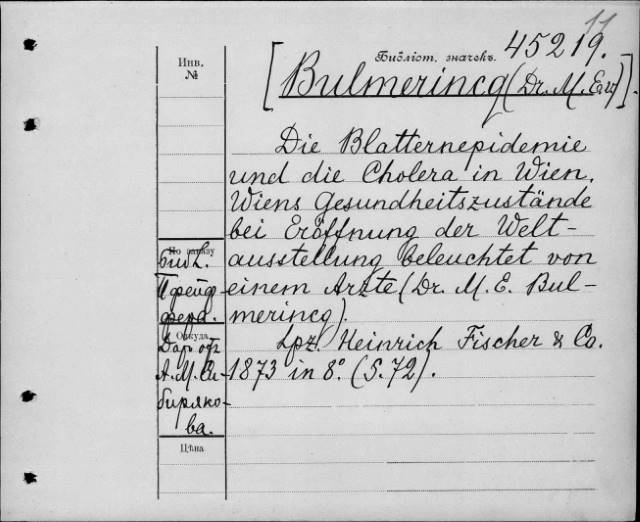 11
Инв.
№
Библіот. значекъ. 45219.
[Bulmerincq (Dr. M. E. v)].
Die Blatternepidemie
und die Cholera in Wien.
Wiens Gesundheitszustände
bei Eröffnung der Welt-
ausstellung beleuchtet von
einem Arzte (Dr. M. E. Bul-
merincq).
Lpz. Heinrich Fischer & Co.
1873 in 8°. (S. 72).
По заказу
Библ.
Пфейф-
фера.
Откуда
Даръ отъ
А. М. Си-
биряко-
ва.
Цѣна